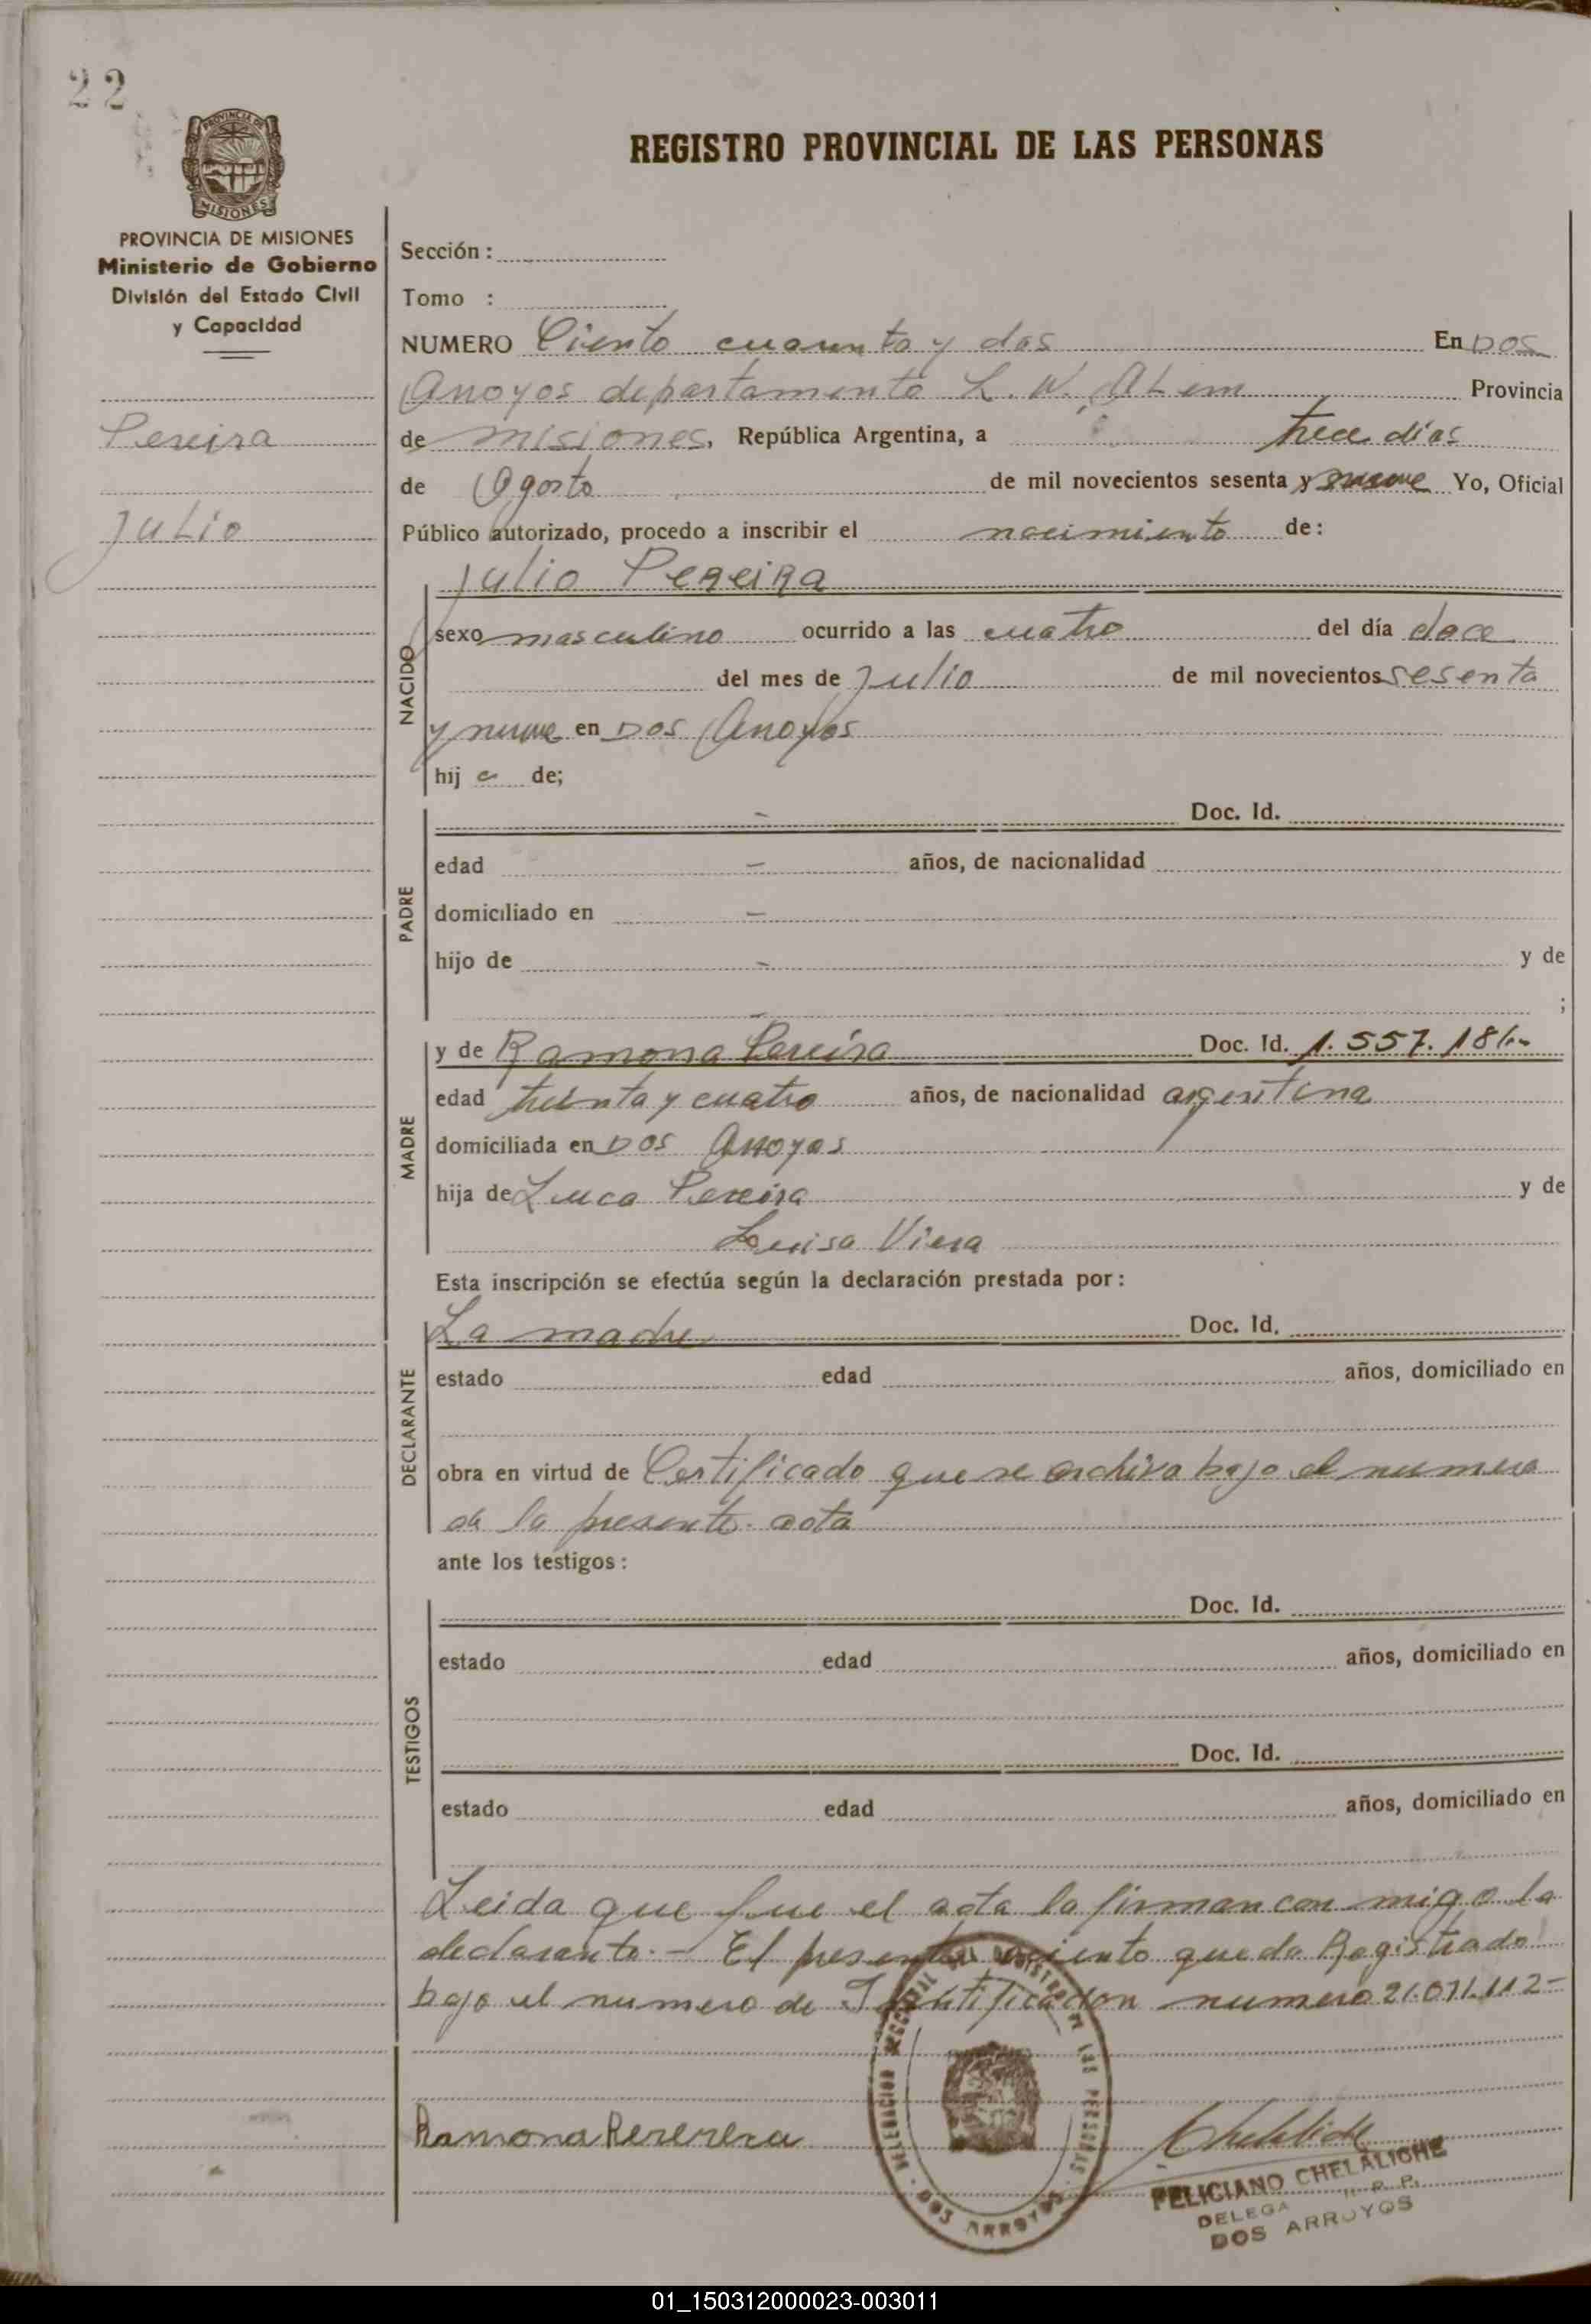 22
PROVINCIA DE
MISIONES
PROVINCIA DE MISIONES
Ministerio de Gobierno
División del Estado Civil
y Capacidad
Pereira
Julio
REGISTRO PROVINCIAL DE LAS PERSONAS
Sección :
Tomo :
NUMERO Ciento cuarenta y dos En Dos
Arroyos departamento L. N. Alem Provincia
de misiones, República Argentina, a trece días
de Agosto de mil novecientos sesenta y nueve Yo, Oficial
Público autorizado, procedo a inscribir el nacimiento de:
Julio Pereira
NACIDO
sexo masculino ocurrido a las cuatro del día doce
del mes de Julio de mil novecientos sesenta
y nueve en Dos Arroyos
hij o de;
PADRE
Doc. Id.
edad años, de nacionalidad
domiciliado en
hijo de y de
;
MADRE
y de Ramona Pereira Doc. Id. 1.557.181.-
edad treinta y cuatro años, de nacionalidad argentina
domiciliada en Dos Arroyos
hija de Luca Pereira y de
Luisa Viera
Esta inscripción se efectúa según la declaración prestada por:
DECLARANTE
La madre Doc. Id.
estado edad años, domiciliado en
obra en virtud de Certificado que se archiva bajo el numero
de la presente acta
ante los testigos:
TESTIGOS
Doc. Id.
estado edad años, domiciliado en
Doc. Id.
estado edad años, domiciliado en
Leida que fue el acta la firman con migo la
declarante.- El presente asiento queda Registrado
bajo el numero de Identificacion numero 21.071.112-
Ramona Pererera
DOS ARROYOS
FELICIANO CHELALICHE
DELEGA R. P. P.
DOS ARROYOS
01_150312000023-003011